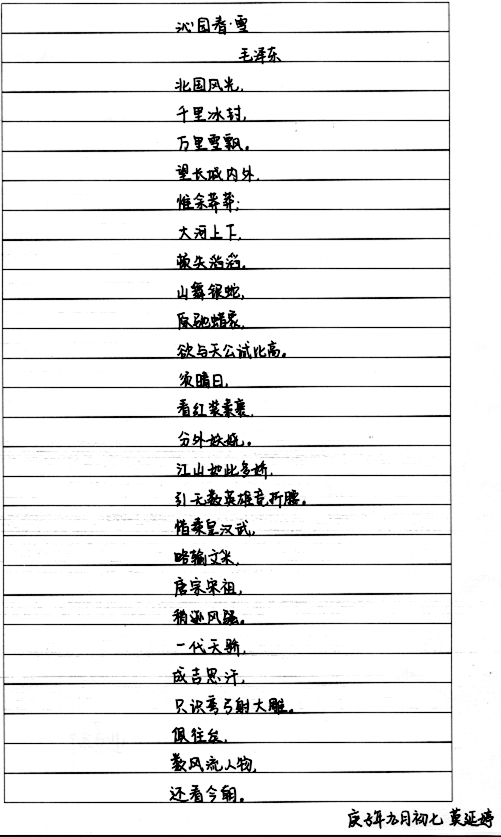 沁园春·雪
毛泽东
北国风光,
千里冰封,
万里雪飘。
望长城内外,
惟余莽莽;
大河上下,
顿失滔滔。
山舞银蛇,
原驰蜡象,
欲与天公试比高。
须晴日,
看红装素裹,
分外妖娆。
江山如此多娇,
引无数英雄竞折腰。
惜秦皇汉武,
略输文采,
唐宗宋祖,
稍逊风骚。
一代天骄,
成吉思汗,
只识弯弓射大雕。
俱往矣,
数风流人物,
还看今朝。
庚子年九月初七 莫延婷